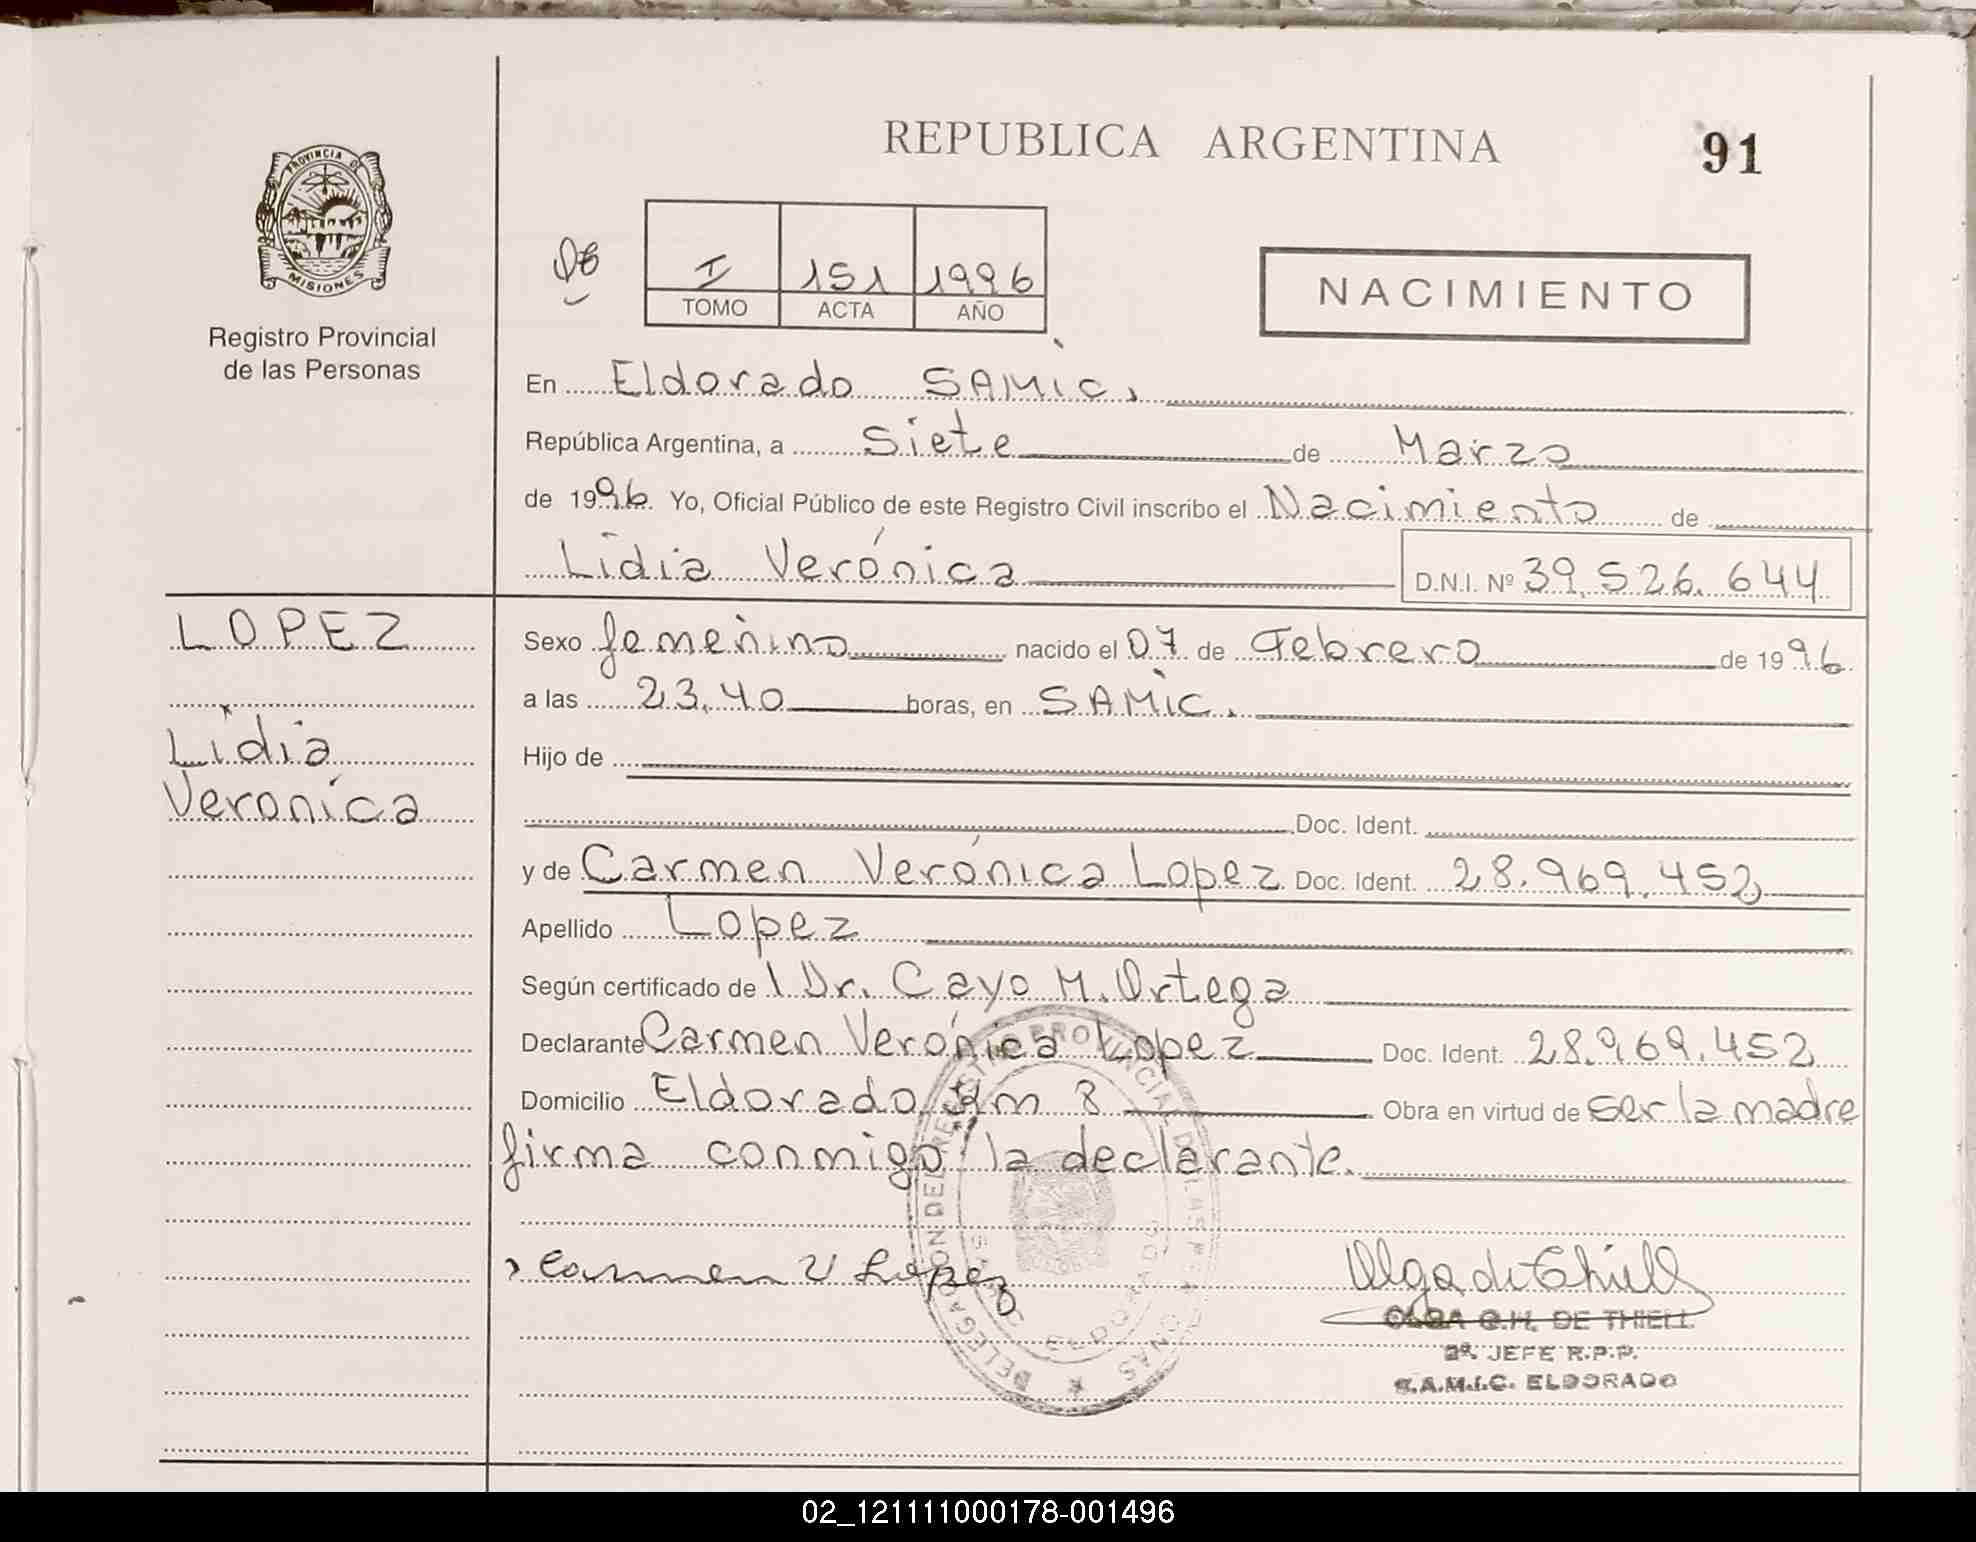 PROVINCIA DE
MISIONES
Registro Provincial
de las Personas
REPUBLICA ARGENTINA
91
I 151 1996
TOMO ACTA AÑO
NACIMIENTO
En Eldorado SAMIC,
República Argentina, a Siete de Marzo
de 1996. Yo, Oficial Público de este Registro Civil inscribo el Nacimiento de
Lidia Verónica D.N.I. Nº 39.526.644
LOPEZ
Lidia
Veronica
Sexo femenino nacido el 07 de Febrero de 1996
a las 23,40 horas, en SAMIC.
Hijo de
Doc. Ident.
y de Carmen Verónica Lopez Doc. Ident. 28.969.452
Apellido Lopez
Según certificado de l Dr. Cayo M. Ortega
Declarante Carmen Verónica Lopez Doc. Ident. 28.969.452
Domicilio Eldorado Km 8 Obra en virtud de ser la madre
firma conmigo la declarante.
Carmen V Lopez
Olga de Thiell
OLGA G.H. DE THIELL
2º JEFE R.P.P.
S.A.M.I.C. ELDORADO
DELEGACION DEL REGISTRO PROVINCIAL DE LAS PERSONAS
ELDORADO
02_121111000178-001496